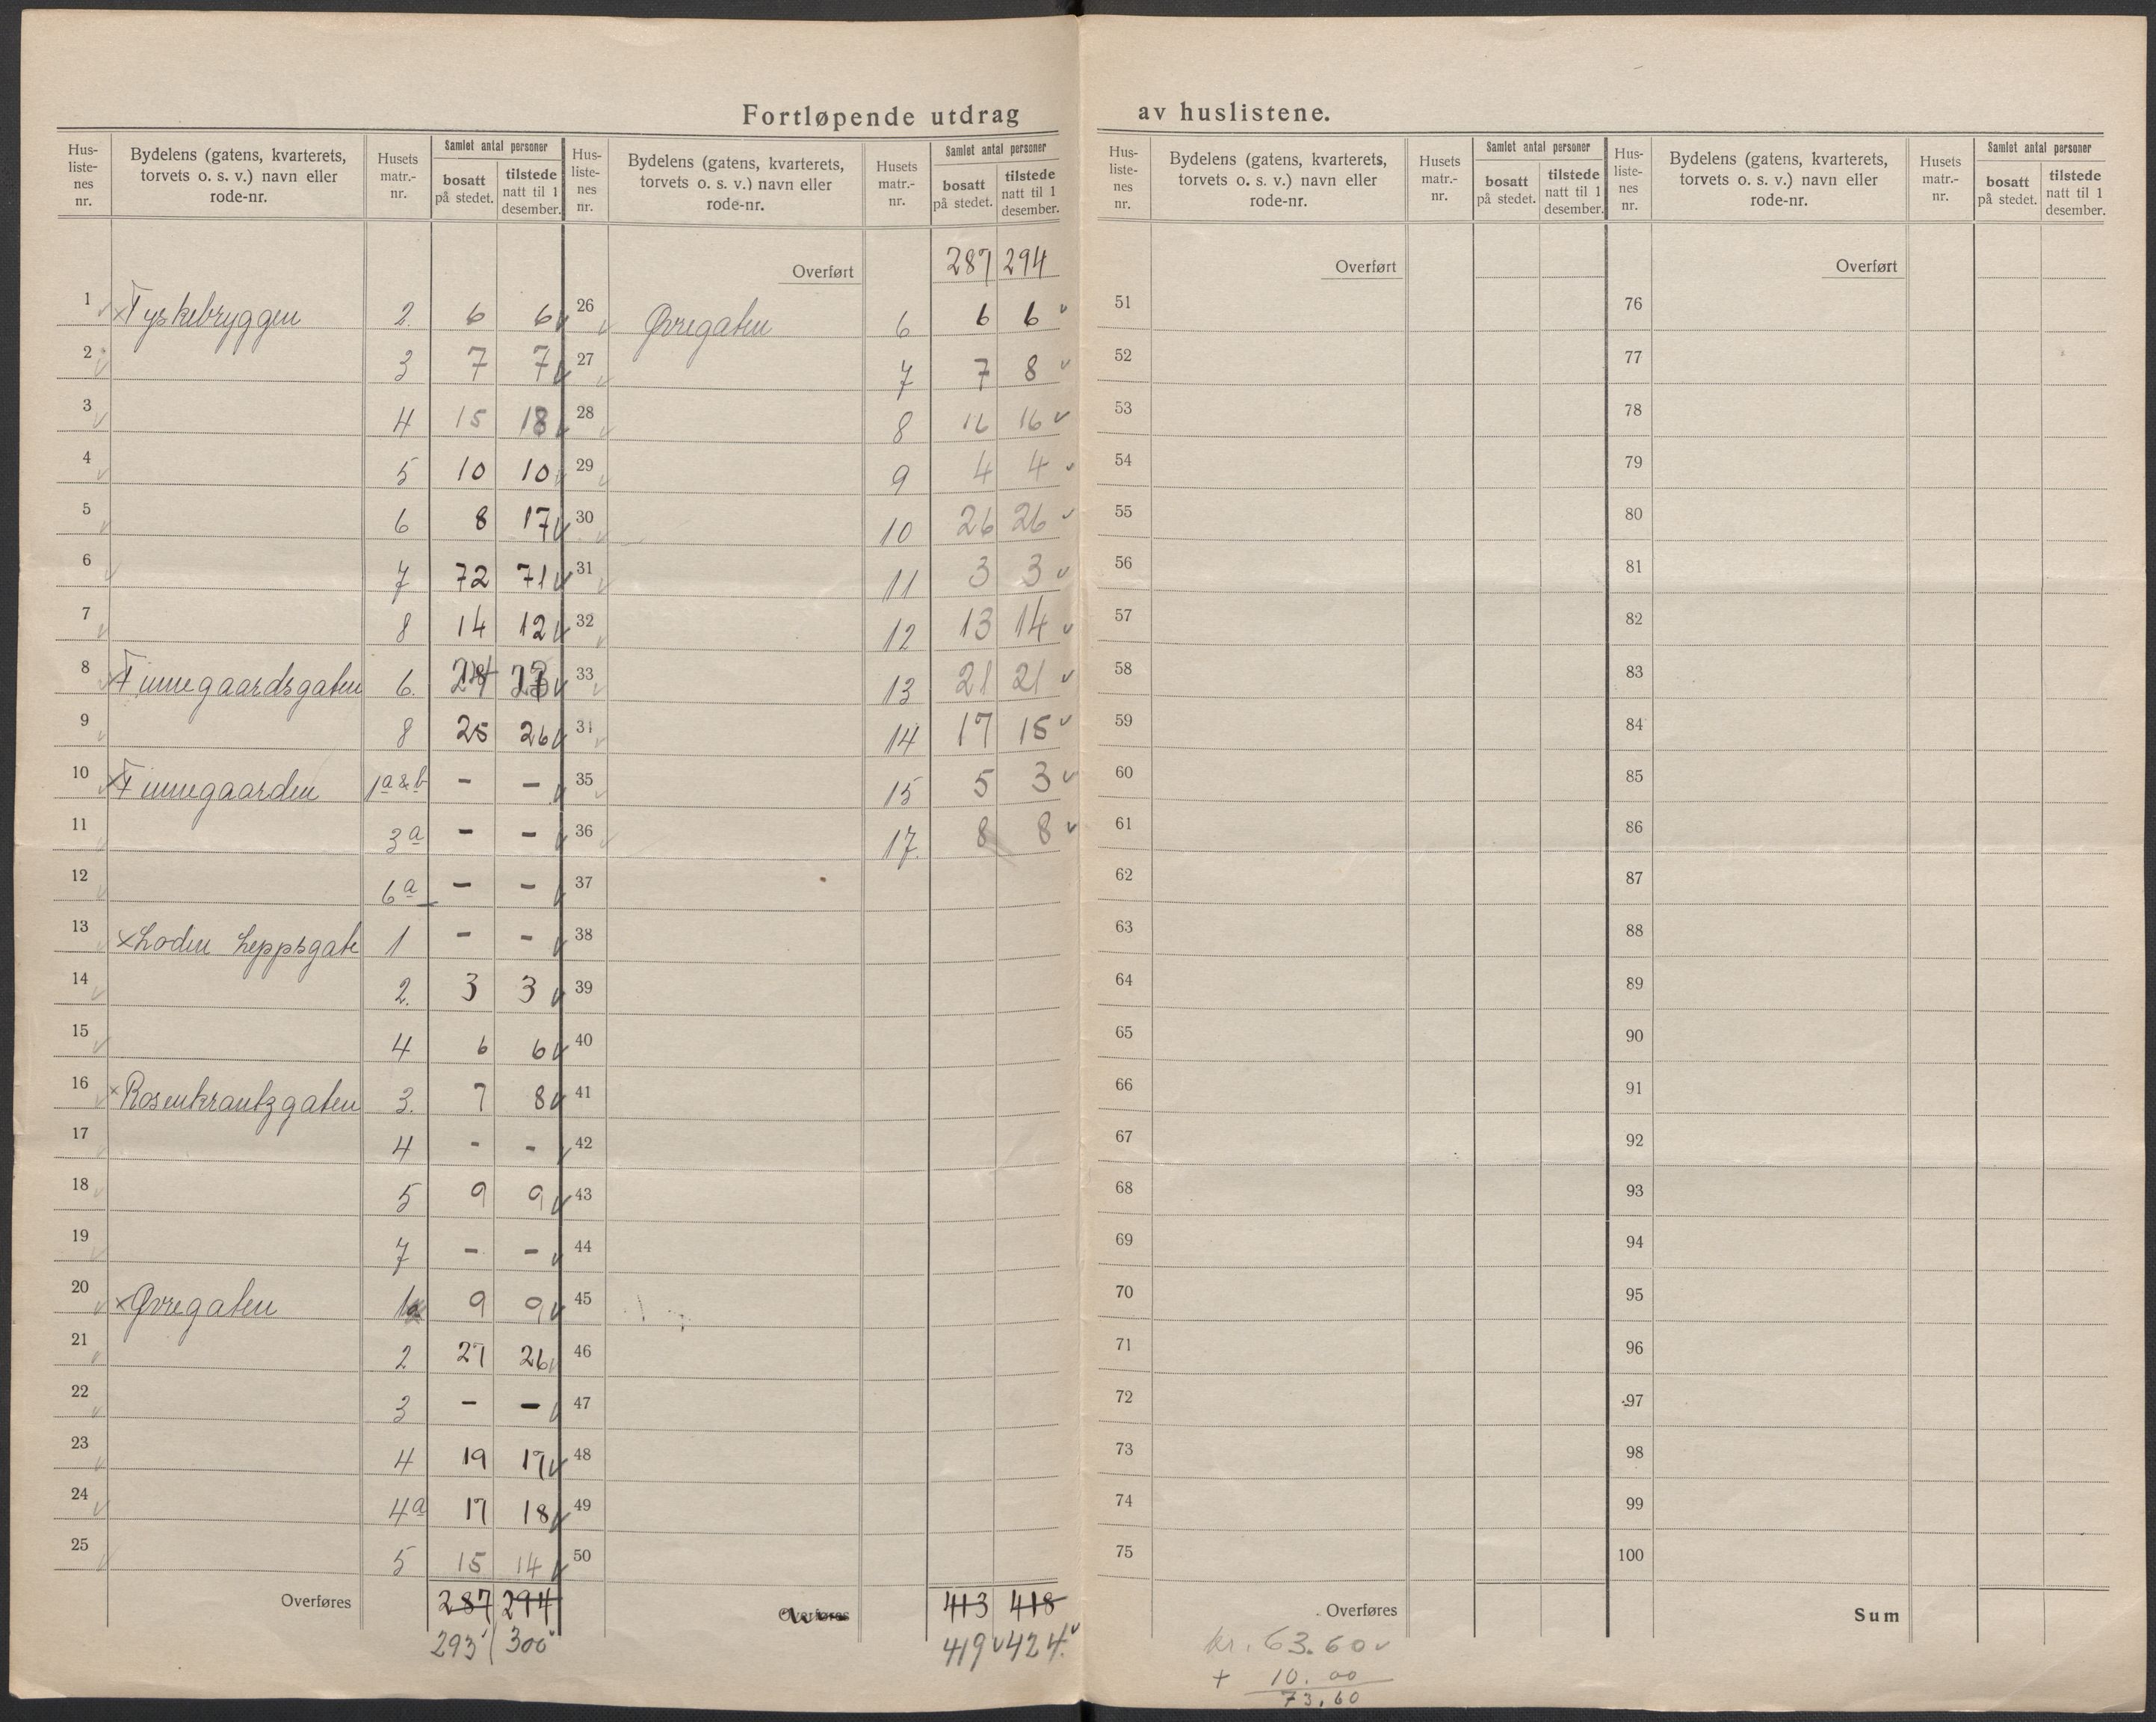 Fortløpende utdrag av huslistene.
Hus-liste-nes nr. Bydelens (gatens, kvarterets, torvets o. s. v.) navn eller rode-nr. Husets matr.-nr. Samlet antal personer bosatt på stedet. tilstede natt til 1 desember.
1 × Tyskebryggen 2. 6 6 ✓
2 3 7 7 ✓
3 4 15 18 ✓
4 5 10 10 ✓
5 6 8 17 ✓
6 7 72 71 ✓
7 8 14 12 ✓
8 × Finnegaardsgaten 6.
9 8 25 26 ✓
10 × Finnegaarden 1a & b - - ✓
11 3a - - ✓
12 6a - - ✓
13 × Lodin Leppsgate 1 - - ✓
14 2. 3 3 ✓
15 4 6 6 ✓
16 × Rosenkrantzgaten 3. 7 8 ✓
17 4 - - ✓
18 5 9 9 ✓
19 7 - - ✓
20 × Øvregaten 1a 9 9 ✓
21 2 27 26 ✓
22 3 - - ✓
23 4 19 17 ✓
24 4a 17 18 ✓
25 5 15 14 ✓
Overføres 287 294
293 300
Hus-liste-nes nr. Bydelens (gatens, kvarterets, torvets o. s. v.) navn eller rode-nr. Husets matr.-nr. Samlet antal personer bosatt på stedet. tilstede natt til 1 desember.
Overført 287 294
26 Øvregaten 6 6 6 ✓
27 7 7 8 ✓
28 8 16 16 ✓
29 9 4 4 ✓
30 10 26 26 ✓
31 11 3 3 ✓
32 12 13 14 ✓
33 13 21 21 ✓
34 14 17 15 ✓
35 15 5 3 ✓
36 17. 8 8 ✓
37
38
39
40
41
42
43
44
45
46
47
48
49
50
Overføres 413 418
419 ✓ 424. ✓
Hus-liste-nes nr. Bydelens (gatens, kvarterets, torvets o. s. v.) navn eller rode-nr. Husets matr.-nr. Samlet antal personer bosatt på stedet. tilstede natt til 1 desember.
Overført
51
52
53
54
55
56
57
58
59
60
61
62
63
64
65
66
67
68
69
70
71
72
73
74
75
Overføres
kr. 63.60 ✓
+ 10.00
73,60
Hus-liste-nes nr. Bydelens (gatens, kvarterets, torvets o. s. v.) navn eller rode-nr. Husets matr.-nr. Samlet antal personer bosatt på stedet. tilstede natt til 1 desember.
Overført
76
77
78
79
80
81
82
83
84
85
86
87
88
89
90
91
92
93
94
95
96
97
98
99
100
Sum